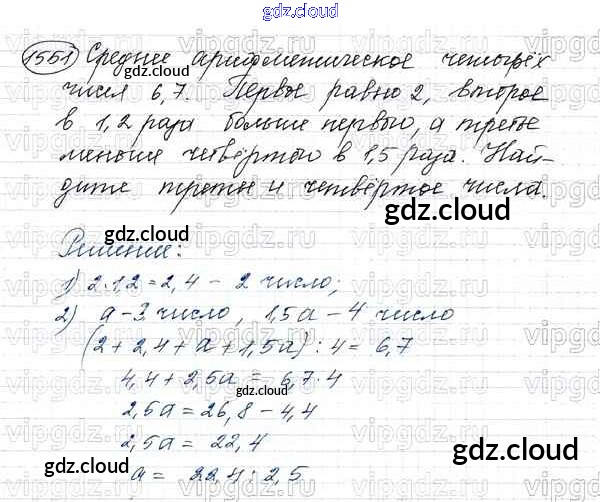 gdz.cloud
1551) Среднее арифметическое четырёх
числа 6,7. Первое равно 2, второе
в 1,2 раза больше первого, а третье
меньше четвёртого в 1,5 раза. Най-
дите третье и четвёртое числа.
gdz.cloud
Решение:
1) 2·1,2=2,4 – 2 число;
2) a – 3 число, 1,5a – 4 число
(2 + 2,4 + a + 1,5a) : 4 = 6,7
4,4 + 2,5a = 6,7·4
2,5a = 26,8 – 4,4
2,5a = 22,4
a = 22,4 : 2,5
gdz.cloud